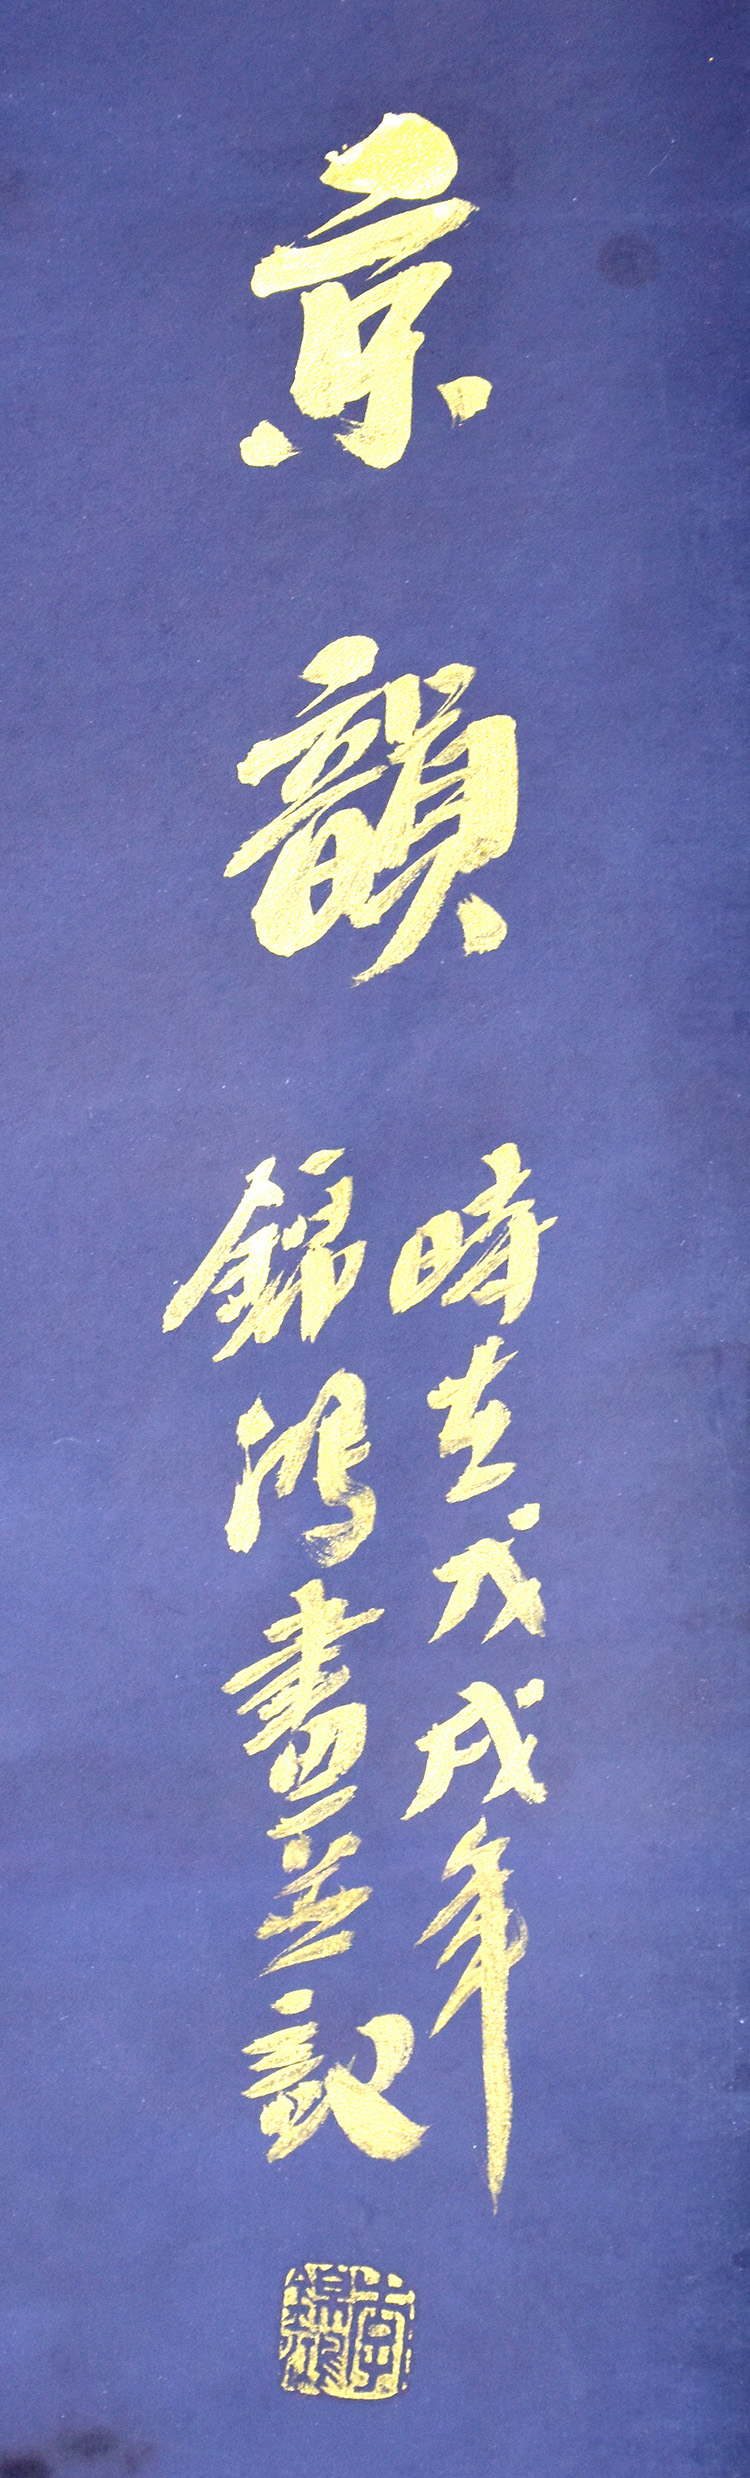 京韻
時在戊戌年
錦鴻書並記